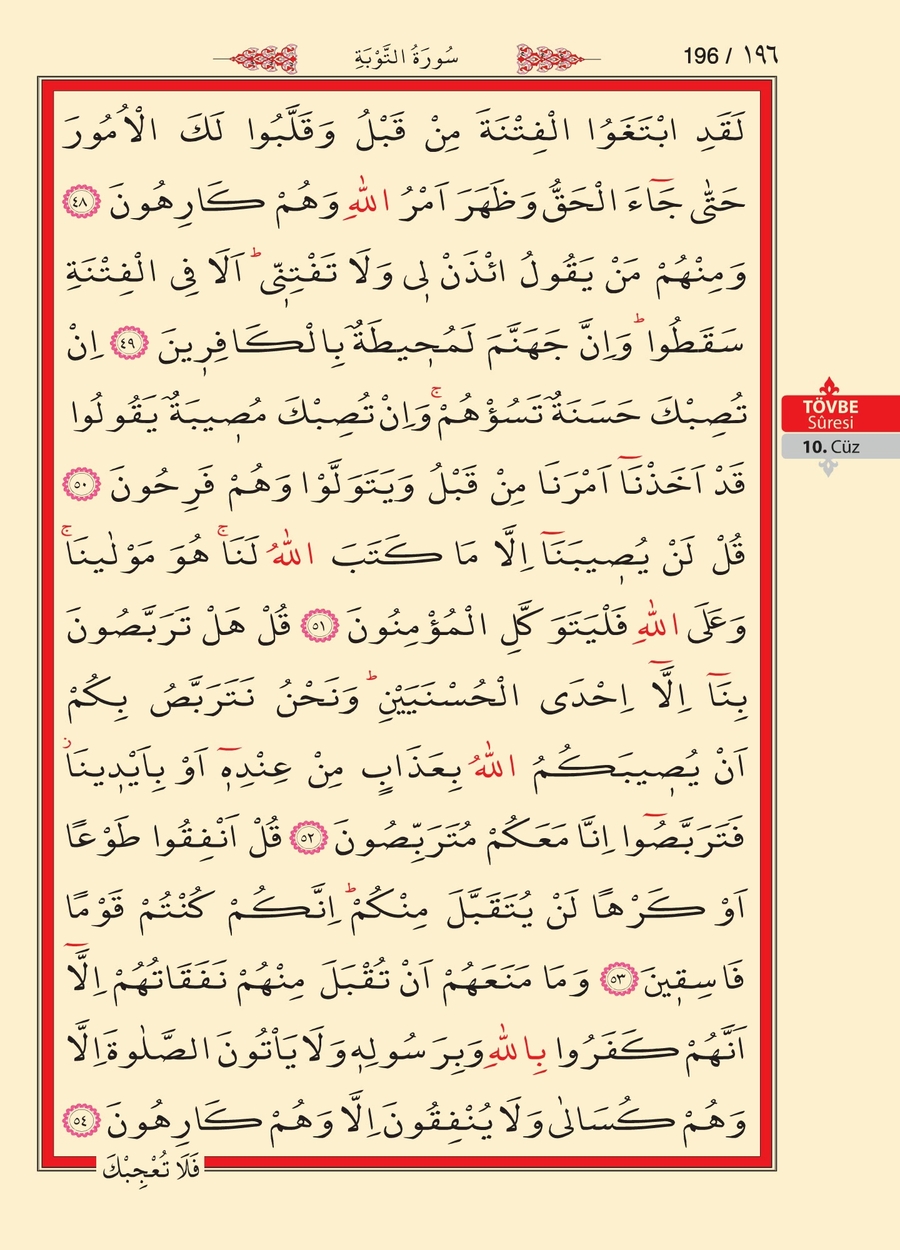 ١٩٦ / 196
سُورَةُ التَّوْبَةِ
لَقَدِ ابْتَغَوُا الْفِتْنَةَ مِنْ قَبْلُ وَقَلَّبُوا لَكَ الْاُمُورَ
حَتّٰى جَٓاءَ الْحَقُّ وَظَهَرَ اَمْرُ اللّٰهِ وَهُمْ كَارِهُونَ ﴿٤٨﴾
وَمِنْهُمْ مَنْ يَقُولُ ائْذَنْ لٖى وَلَا تَفْتِنّٖى ؕ اَلَا فِى الْفِتْنَةِ
سَقَطُوا ؕ وَاِنَّ جَهَنَّمَ لَمُحٖيطَةٌ بِالْكَافِرٖينَ ﴿٤٩﴾ اِنْ
تُصِبْكَ حَسَنَةٌ تَسُؤْهُمْ ۚ وَاِنْ تُصِبْكَ مُصٖيبَةٌ يَقُولُوا
قَدْ اَخَذْنَٓا اَمْرَنَا مِنْ قَبْلُ وَيَتَوَلَّوْا وَهُمْ فَرِحُونَ ﴿٥٠﴾
قُلْ لَنْ يُصٖيبَنَٓا اِلَّا مَا كَتَبَ اللّٰهُ لَنَا ۚ هُوَ مَوْلٰينَا ۚ
وَعَلَى اللّٰهِ فَلْيَتَوَكَّلِ الْمُؤْمِنُونَ ﴿٥١﴾ قُلْ هَلْ تَرَبَّصُونَ
بِنَٓا اِلَّٓا اِحْدَى الْحُسْنَيَيْنِ ؕ وَنَحْنُ نَتَرَبَّصُ بِكُمْ
اَنْ يُصٖيبَكُمُ اللّٰهُ بِعَذَابٍ مِنْ عِنْدِهٖٓ اَوْ بِاَيْدٖينَا ؗ
فَتَرَبَّصُٓوا اِنَّا مَعَكُمْ مُتَرَبِّصُونَ ﴿٥٢﴾ قُلْ اَنْفِقُوا طَوْعًا
اَوْ كَرْهًا لَنْ يُتَقَبَّلَ مِنْكُمْ ؕ اِنَّكُمْ كُنْتُمْ قَوْمًا
فَاسِقٖينَ ﴿٥٣﴾ وَمَا مَنَعَهُمْ اَنْ تُقْبَلَ مِنْهُمْ نَفَقَاتُهُمْ اِلَّٓا
اَنَّهُمْ كَفَرُوا بِاللّٰهِ وَبِرَسُولِهٖ وَلَا يَاْتُونَ الصَّلٰوةَ اِلَّا
وَهُمْ كُسَالٰى وَلَا يُنْفِقُونَ اِلَّا وَهُمْ كَارِهُونَ ﴿٥٤﴾
فَلَا تُعْجِبْكَ
TÖVBE
Sûresi
10. Cüz